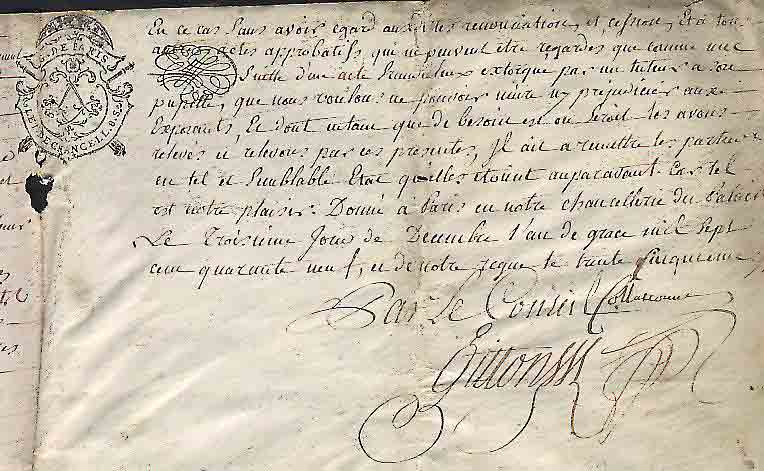 En ce cas sans avoir egard aux dites renonciation, et cession, Et a tous
autres actes approbatifs, qui ne peuvent être regardés que comme une
suitte d'un acte frauduleux extorqué par un tuteur a son
pupille, que nous voulons ne pouvoir nuire ny prejudicier aux
Exposants Et dont entant que de besoin est ou seroit les avons
relevés et relevons par ces presentes, Et ait a remettre les parties
en tel et semblable Etat qu'elles étoient auparavant Car tel
est notre plaisir. Donné à Paris en notre chancellerie du Palais
Le Troisième Jour de Decembre l'an de grace mil Sept
cent quarante neuf, et de notre regne le trente cinquieme
Par Le Conseil Collationné
DE PARIS